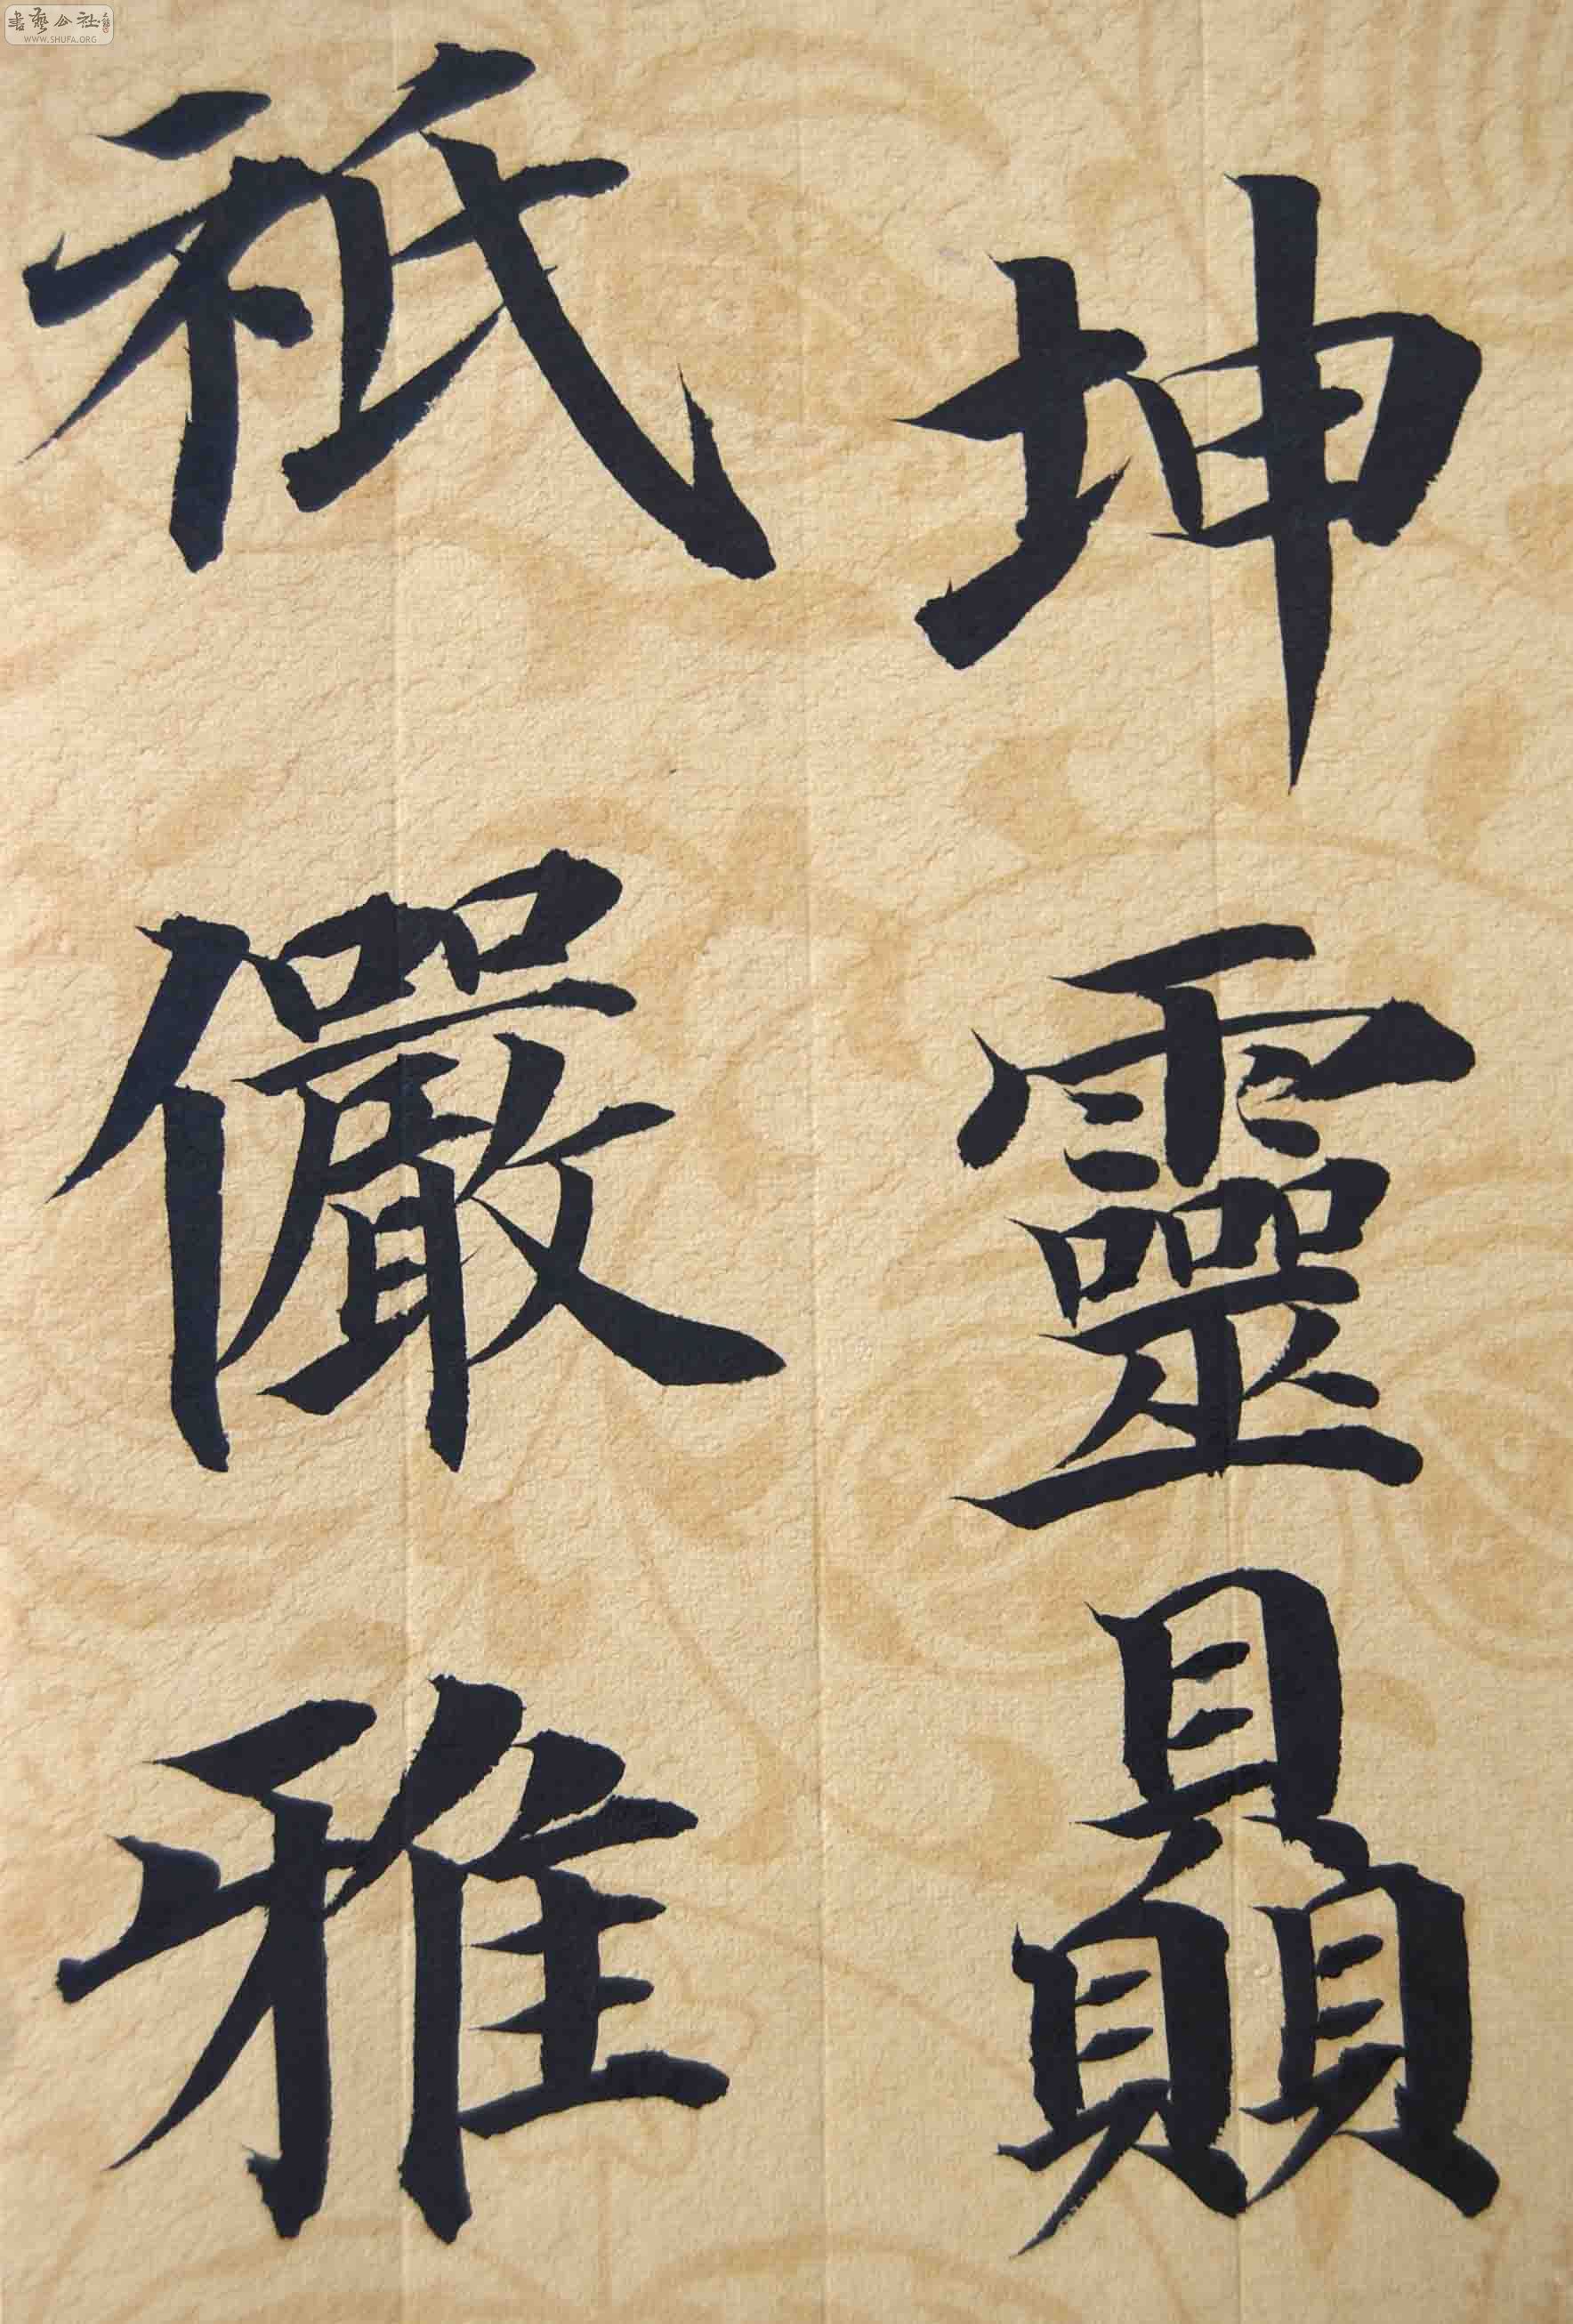 坤靈贔
祇儼雅
書藝公社
WWW.SHUFA.ORG